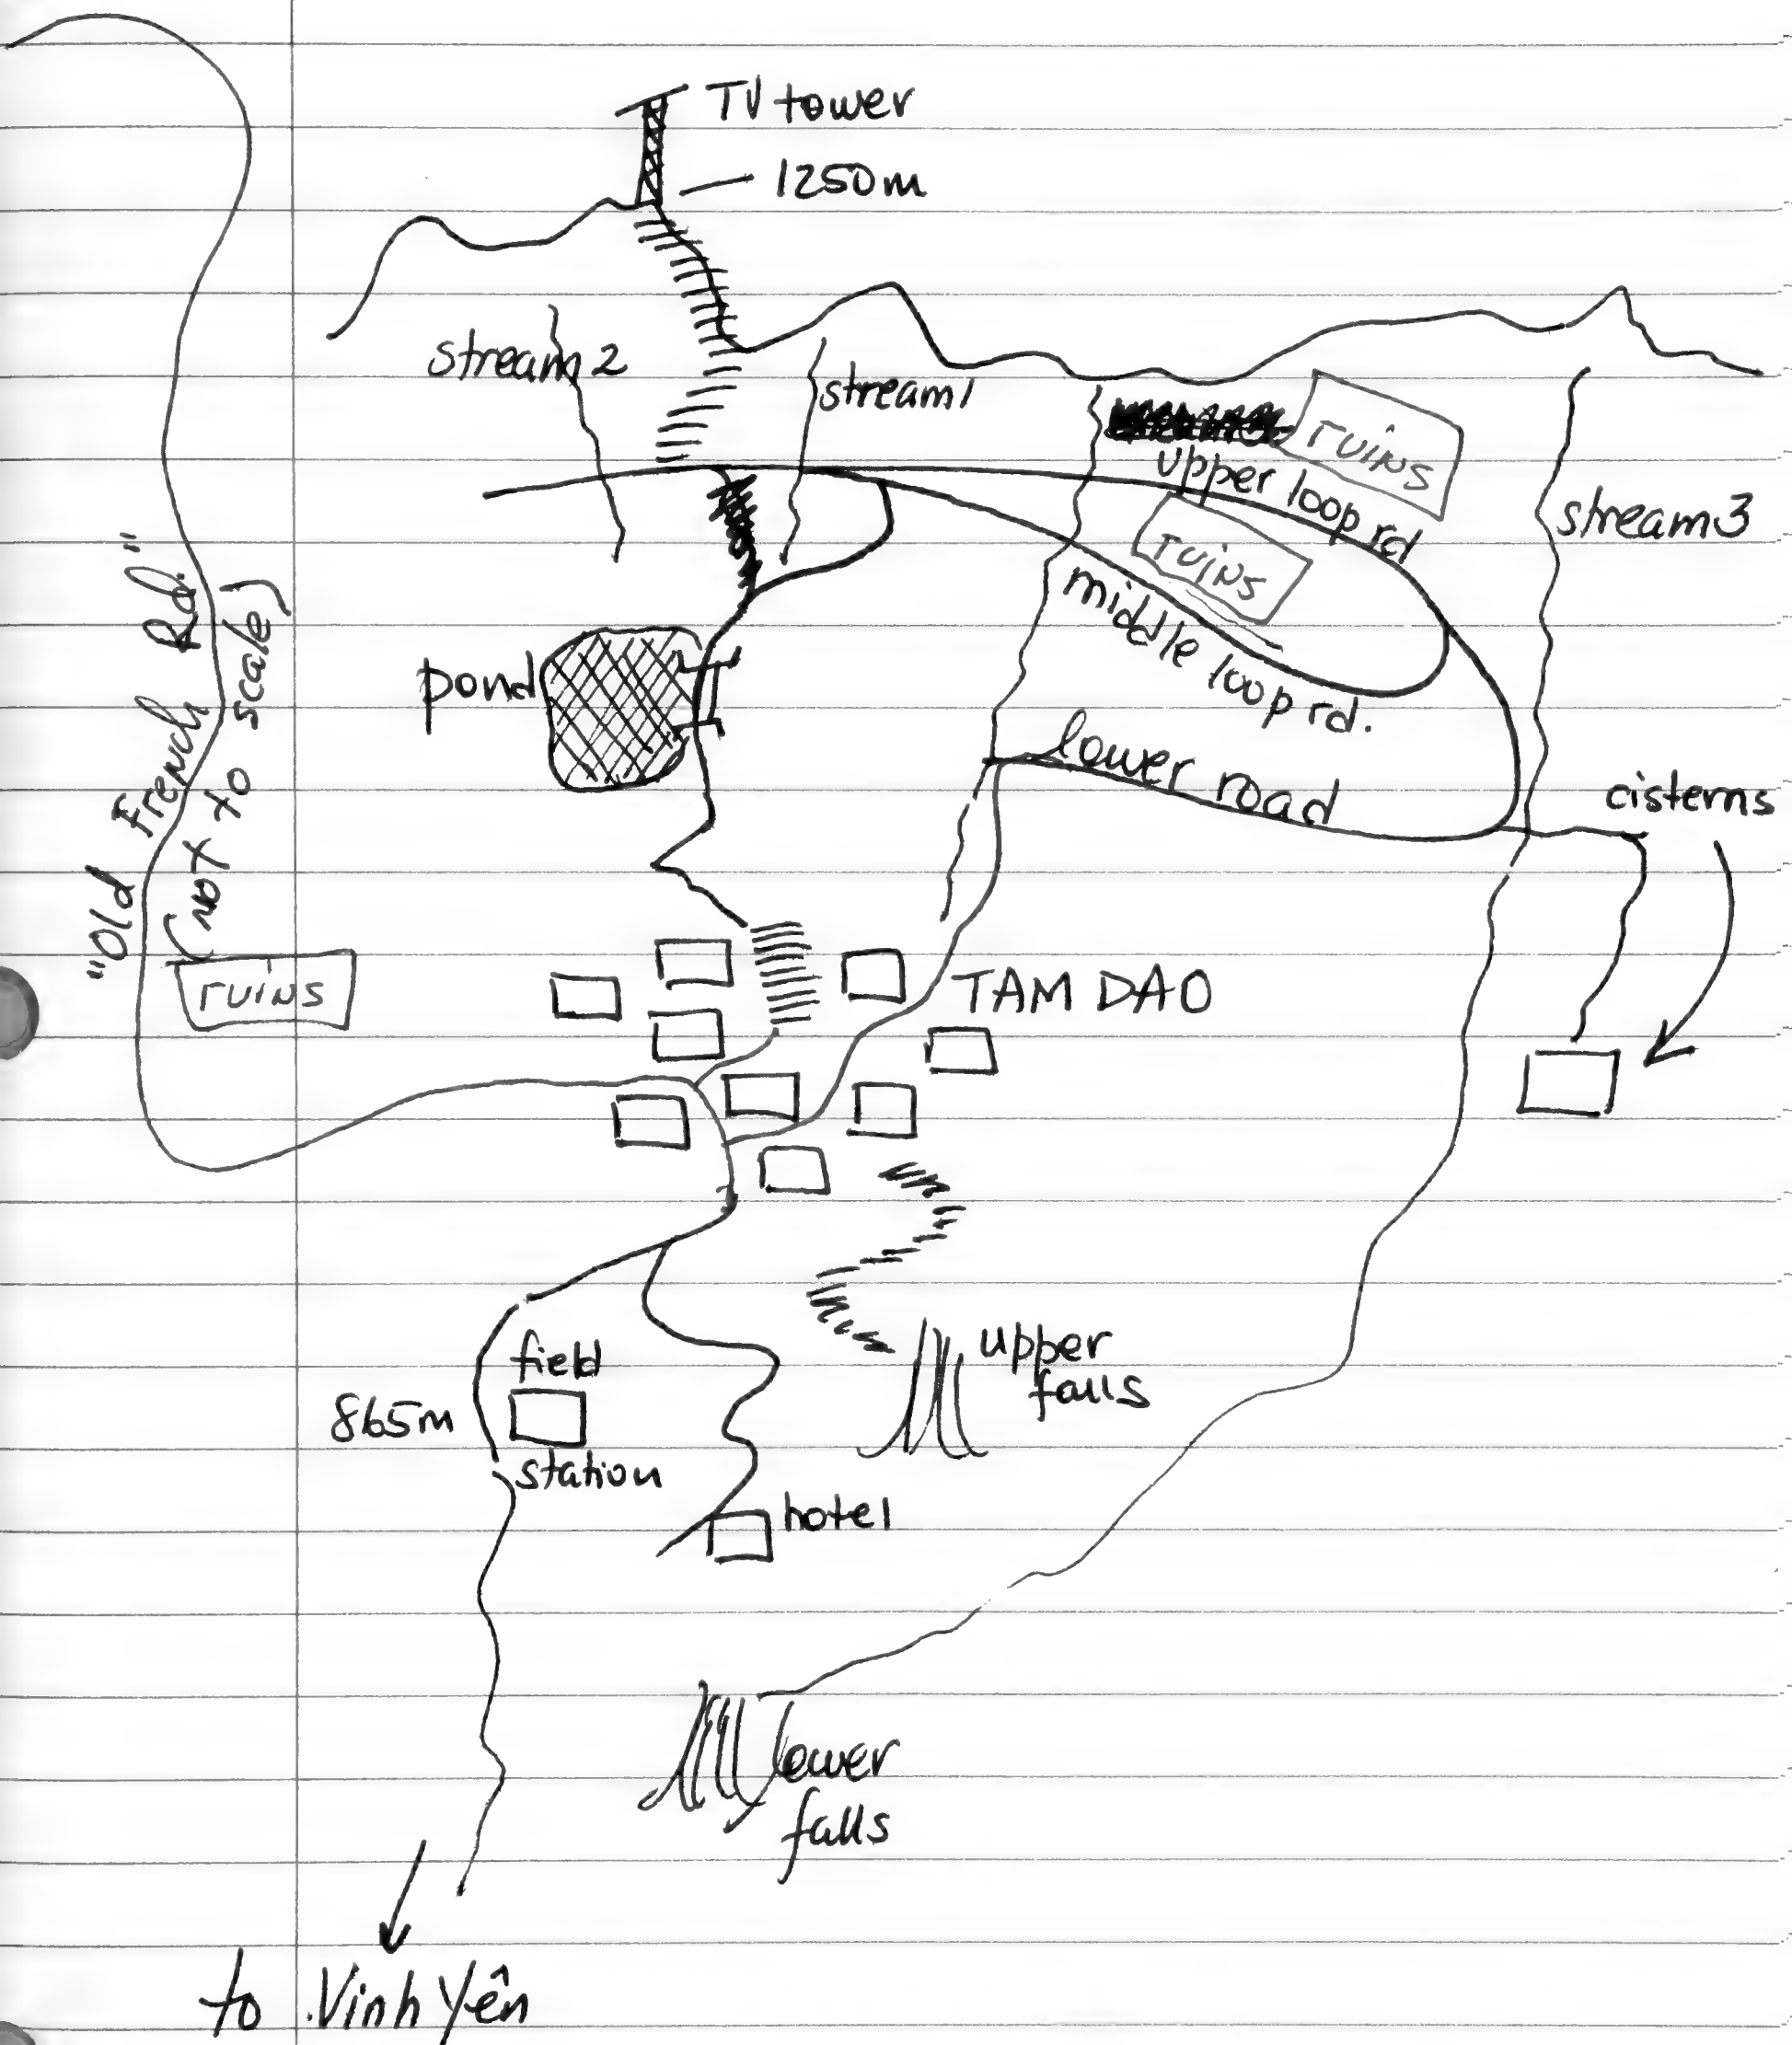 TV tower
1250m
stream2
stream1
ruins
upper loop rd
stream3
ruins
middle loop rd.
pond
lower road
cisterns
"Old French Rd."
(not to scale)
ruins
TAM DAO
field
station
865m
upper
falls
hotel
lower
falls
to Vinh Yên